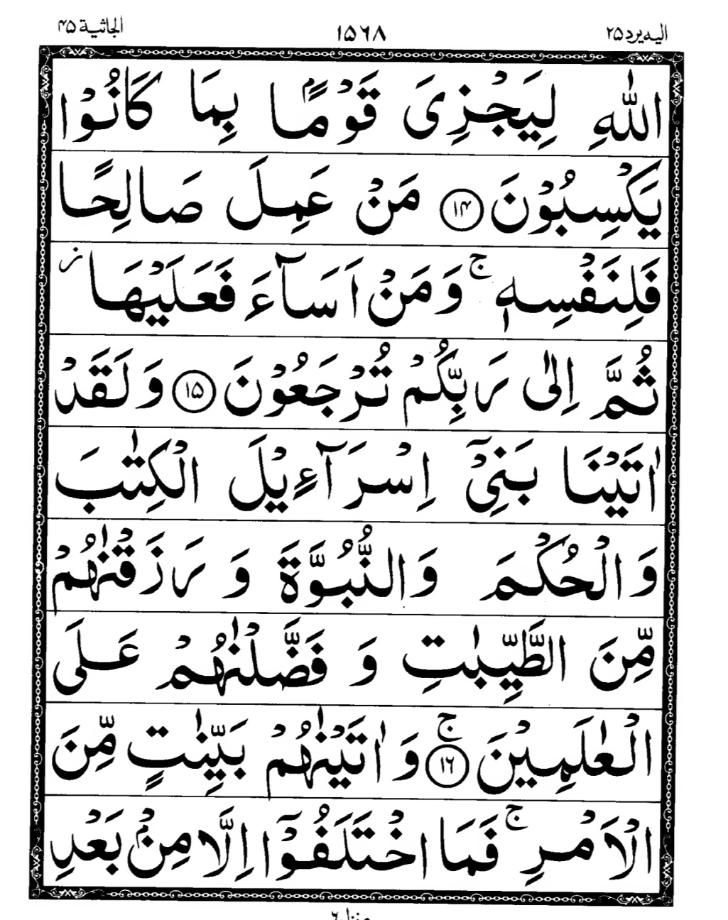 الجاثیة ۴۵ ۱۵۶۸ الیه یرد ۲۵
اللّٰهِ لِیَجْزِیَ قَوْمًۢا بِمَا كَانُوْا
یَكْسِبُوْنَ ﴿۱۴﴾ مَنْ عَمِلَ صَالِحًا
فَلِنَفْسِهٖ ۚ وَ مَنْ اَسَآءَ فَعَلَیْهَا ؗ
ثُمَّ اِلٰی رَبِّكُمْ تُرْجَعُوْنَ ﴿۱۵﴾ وَ لَقَدْ
اٰتَیْنَا بَنِیْۤ اِسْرَآءِیْلَ الْكِتٰبَ
وَالْحُكْمَ وَالنُّبُوَّةَ وَ رَزَقْنٰهُمْ
مِّنَ الطَّیِّبٰتِ وَ فَضَّلْنٰهُمْ عَلَی
الْعٰلَمِیْنَ ۚ﴿۱۶﴾ وَ اٰتَیْنٰهُمْ بَیِّنٰتٍ مِّنَ
الْاَمْرِ ۚ فَمَا اخْتَلَفُوْۤا اِلَّا مِنْۢ بَعْدِ
منزل ۶